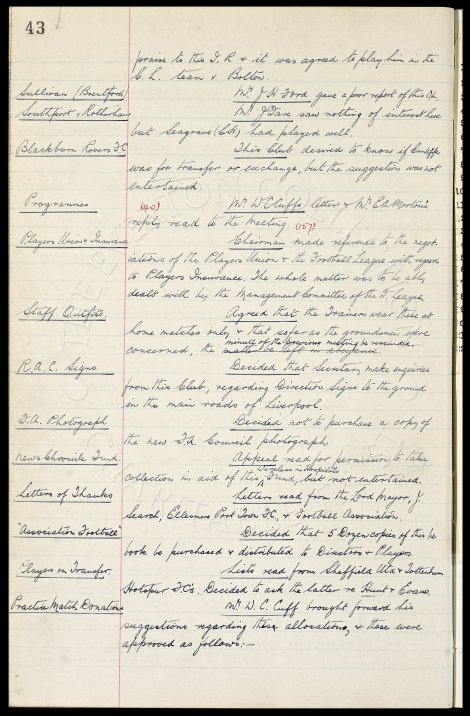 43
praise to this I. R & it was agreed to play him in the
C. L. team v Bolton.
Sullivan (Brentford) Mr J H Ford gave a poor report of this Ch.
Southport v Rotherham Mr J Fare saw nothing of interest here
but Seagrave (C.H) had played well.
Blackburn Rovers F.C This Club desired to know if Cunliffe
was for transfer or exchange, but the suggestion was not
entertained.
Programmes (40) Mr W Cluffs letter & Mr E.A Morton's
reply read to the meeting. (157)
Players Union & Insurance Chairman made reference to the negot-
iations of the Players Union & the Football League with regard
to Players Insurance. The whole matter was to be ably
dealt with by the Management Committee of the F. League.
Staff Outfits. Agreed that the Trainers wear these at
home matches only & that so far as the groundsmen were
concerned, the minute of the previous meeting be rescinded.
matter be left in abeyance.
R.A.C. Signs. Decided that Secretary make enquiries
from this Club, regarding Direction Signs to the ground
in the main roads of Liverpool.
F.A. Photograph Decided not to purchase a copy of
the new F.A. Council photograph
News Chronicle Fund. Appeal read for permission to take
collection in aid of this Wireless in Hospitals Fund, but not entertained.
Letters of Thanks Letters read from the Lord Mayor, J
Search, Ellesmere Port Town F.C, & Football Association.
"Association Football" Decided that 5 Dozen copies of this
book be purchased & distributed to Directors & Players
Players on Transfer Lists read from Sheffield Utd & Tottenham
Hotspur F.C's. Decided to ask the latter re Hunt & Evans.
Practice Match Donations Mr W. C. Cuff brought forward his
suggestions regarding these allocations, & these were
approved as follows:—